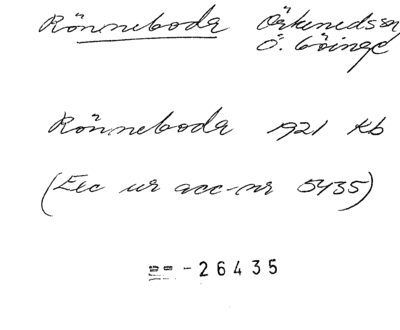 Rönneboda Örkenedssn
Ö. Göinge
Rönneboda 1921 Kb
(Exc ur acc-nr 5435)
== -26435